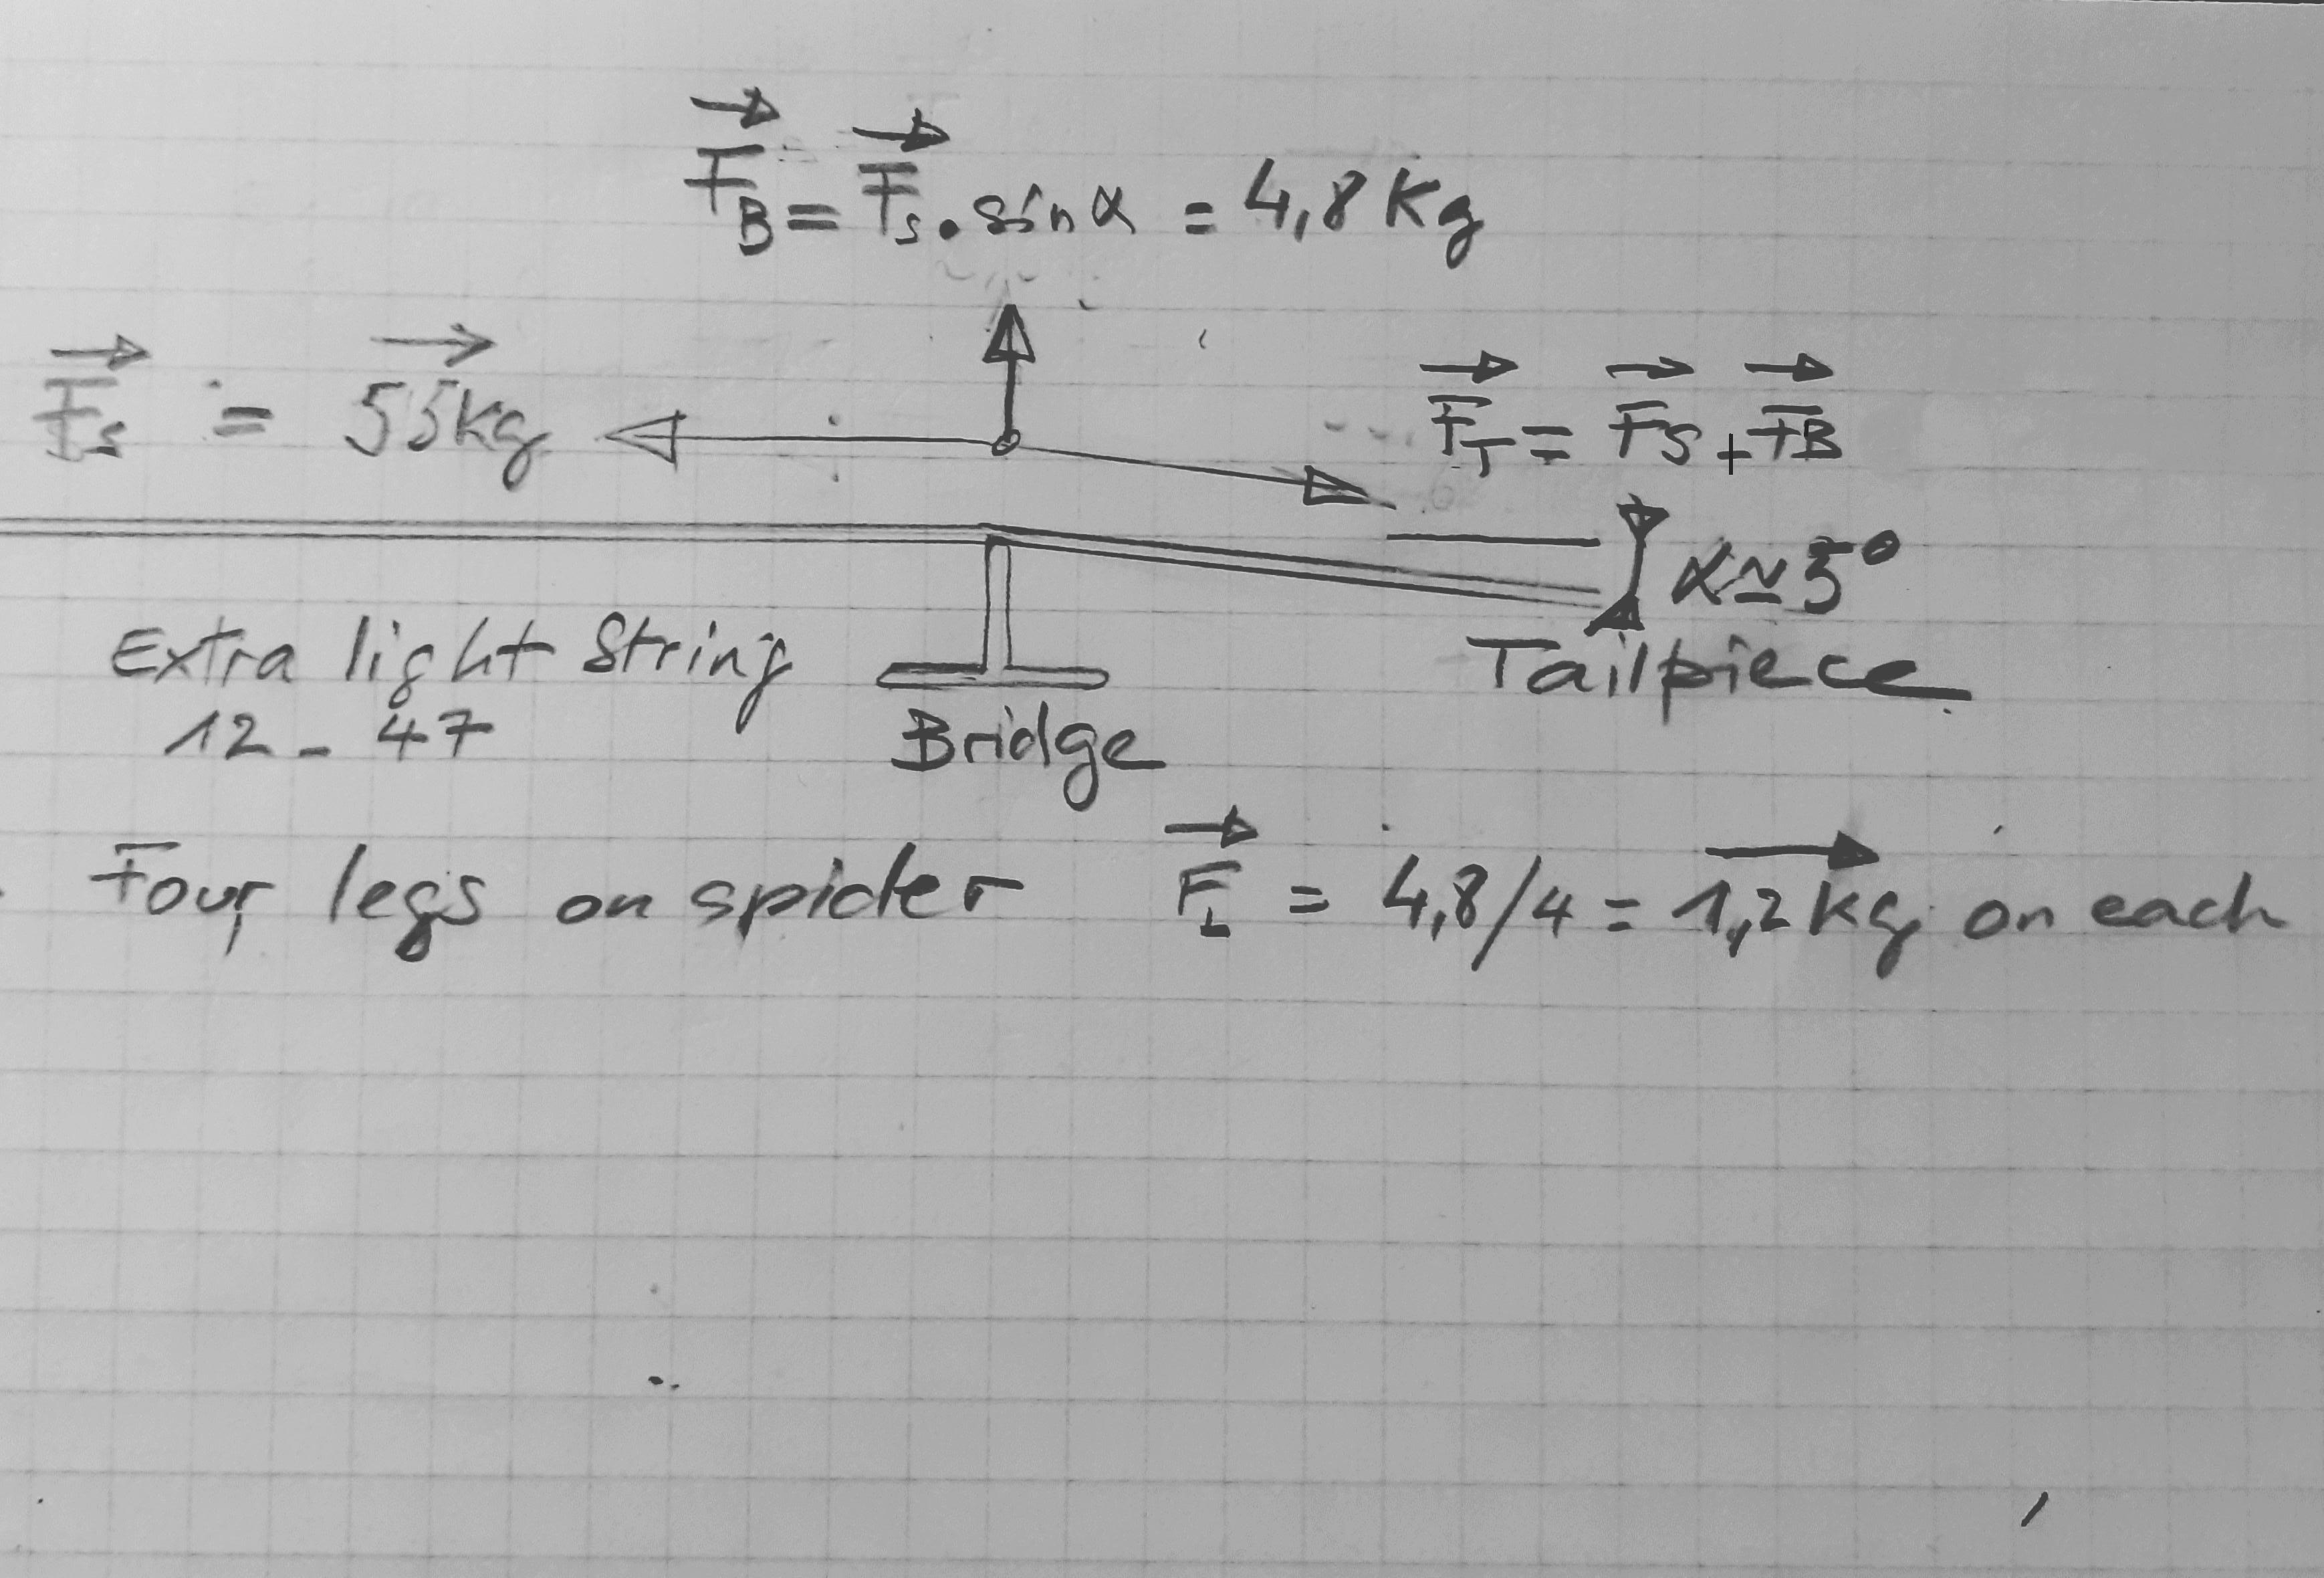 F⃗_B = F⃗_s • sin α = 4,8 Kg
F⃗_s = 55kg
F⃗_T = F⃗_S + F⃗_B
α ≃ 5°
Tailpiece
Extra light String
12 - 47
Bridge
Four legs on spider F⃗_L = 4,8/4 = 1,2 kg on each